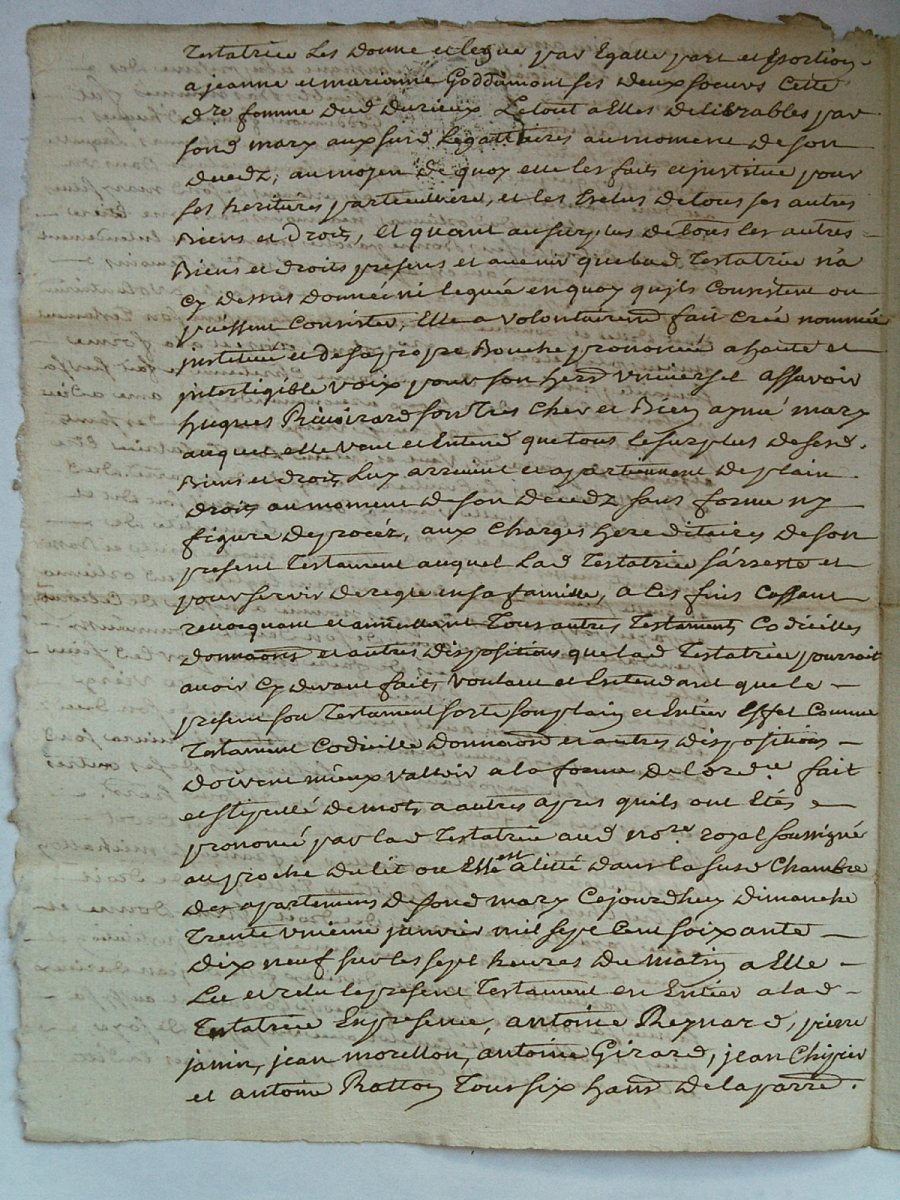 Testatrice Les Donne et legue par Egalle part et portion
a jeanne et marianne Goddamont ses deux soeurs cette
dre femme dud durieux Le tout a Elles delibrables par
sond mary aux susd Legattaires au moment de son
decedz, au moyen de quoy elle les fait et justitue pour
ses heritieres particulliere, et les Exclus de tous ses autres
Biens et droits, Et quant au surplus de tous les autres
Biens et droits presens et avenir que lad Testatrice n'a
cy dessus donnée ni leguée en quoy quils Consistent ou
puissent Consister, Elle a volontairemt fait créé nommée
justitué et de sa propre Bouche prononcé a haute et
intertigible voix pour son herd universel assavoir
hugues Rivoirard son tres cher et Bien aymé mary
auquel elle veut et Entend que tous le surplus de sesd.
Biens et droits Luy arrivent et apartiennent de plain
droit au moment de son decedz sans forme ny
figure de procéz, aux Charges hereditaires de son
present Testament auquel Lad Testatrice s'arreste et
pour servir de regle en sa famille, a Ces fins Cassant
revocquant et annullant Tous autres Testaments Codicilles
donnaons et autres dispositions que lad Testatrice pourrait
avoir Cy devant fait, voulant et Entendant que le
present son Testament sorte son plain et Entier Effet Comme
Testament Codicille donnaond et autres dispositions
doivent mieux valloir a la forme de l'orde. fait
et stipullé de mots a autres apres quils ont Etés
prononcé par lad Testatrice aud nore. royal soussigné
au proche du lit ou Elle est alitté dans la susd Chambre
des apartemens de sond mary Cejourdhuy dimanche
Trente unieme janvier mil sept cent soixante
dix neuf sur les sept heures du matin a Elle
Lu et relu le present Testament en Entier a lad
Testatrice En presence, antoine Reynard, pierre
janin, jean morellon, antoine Girard, jean Chipier
et antoine Ratton Tous six habds de la parre.